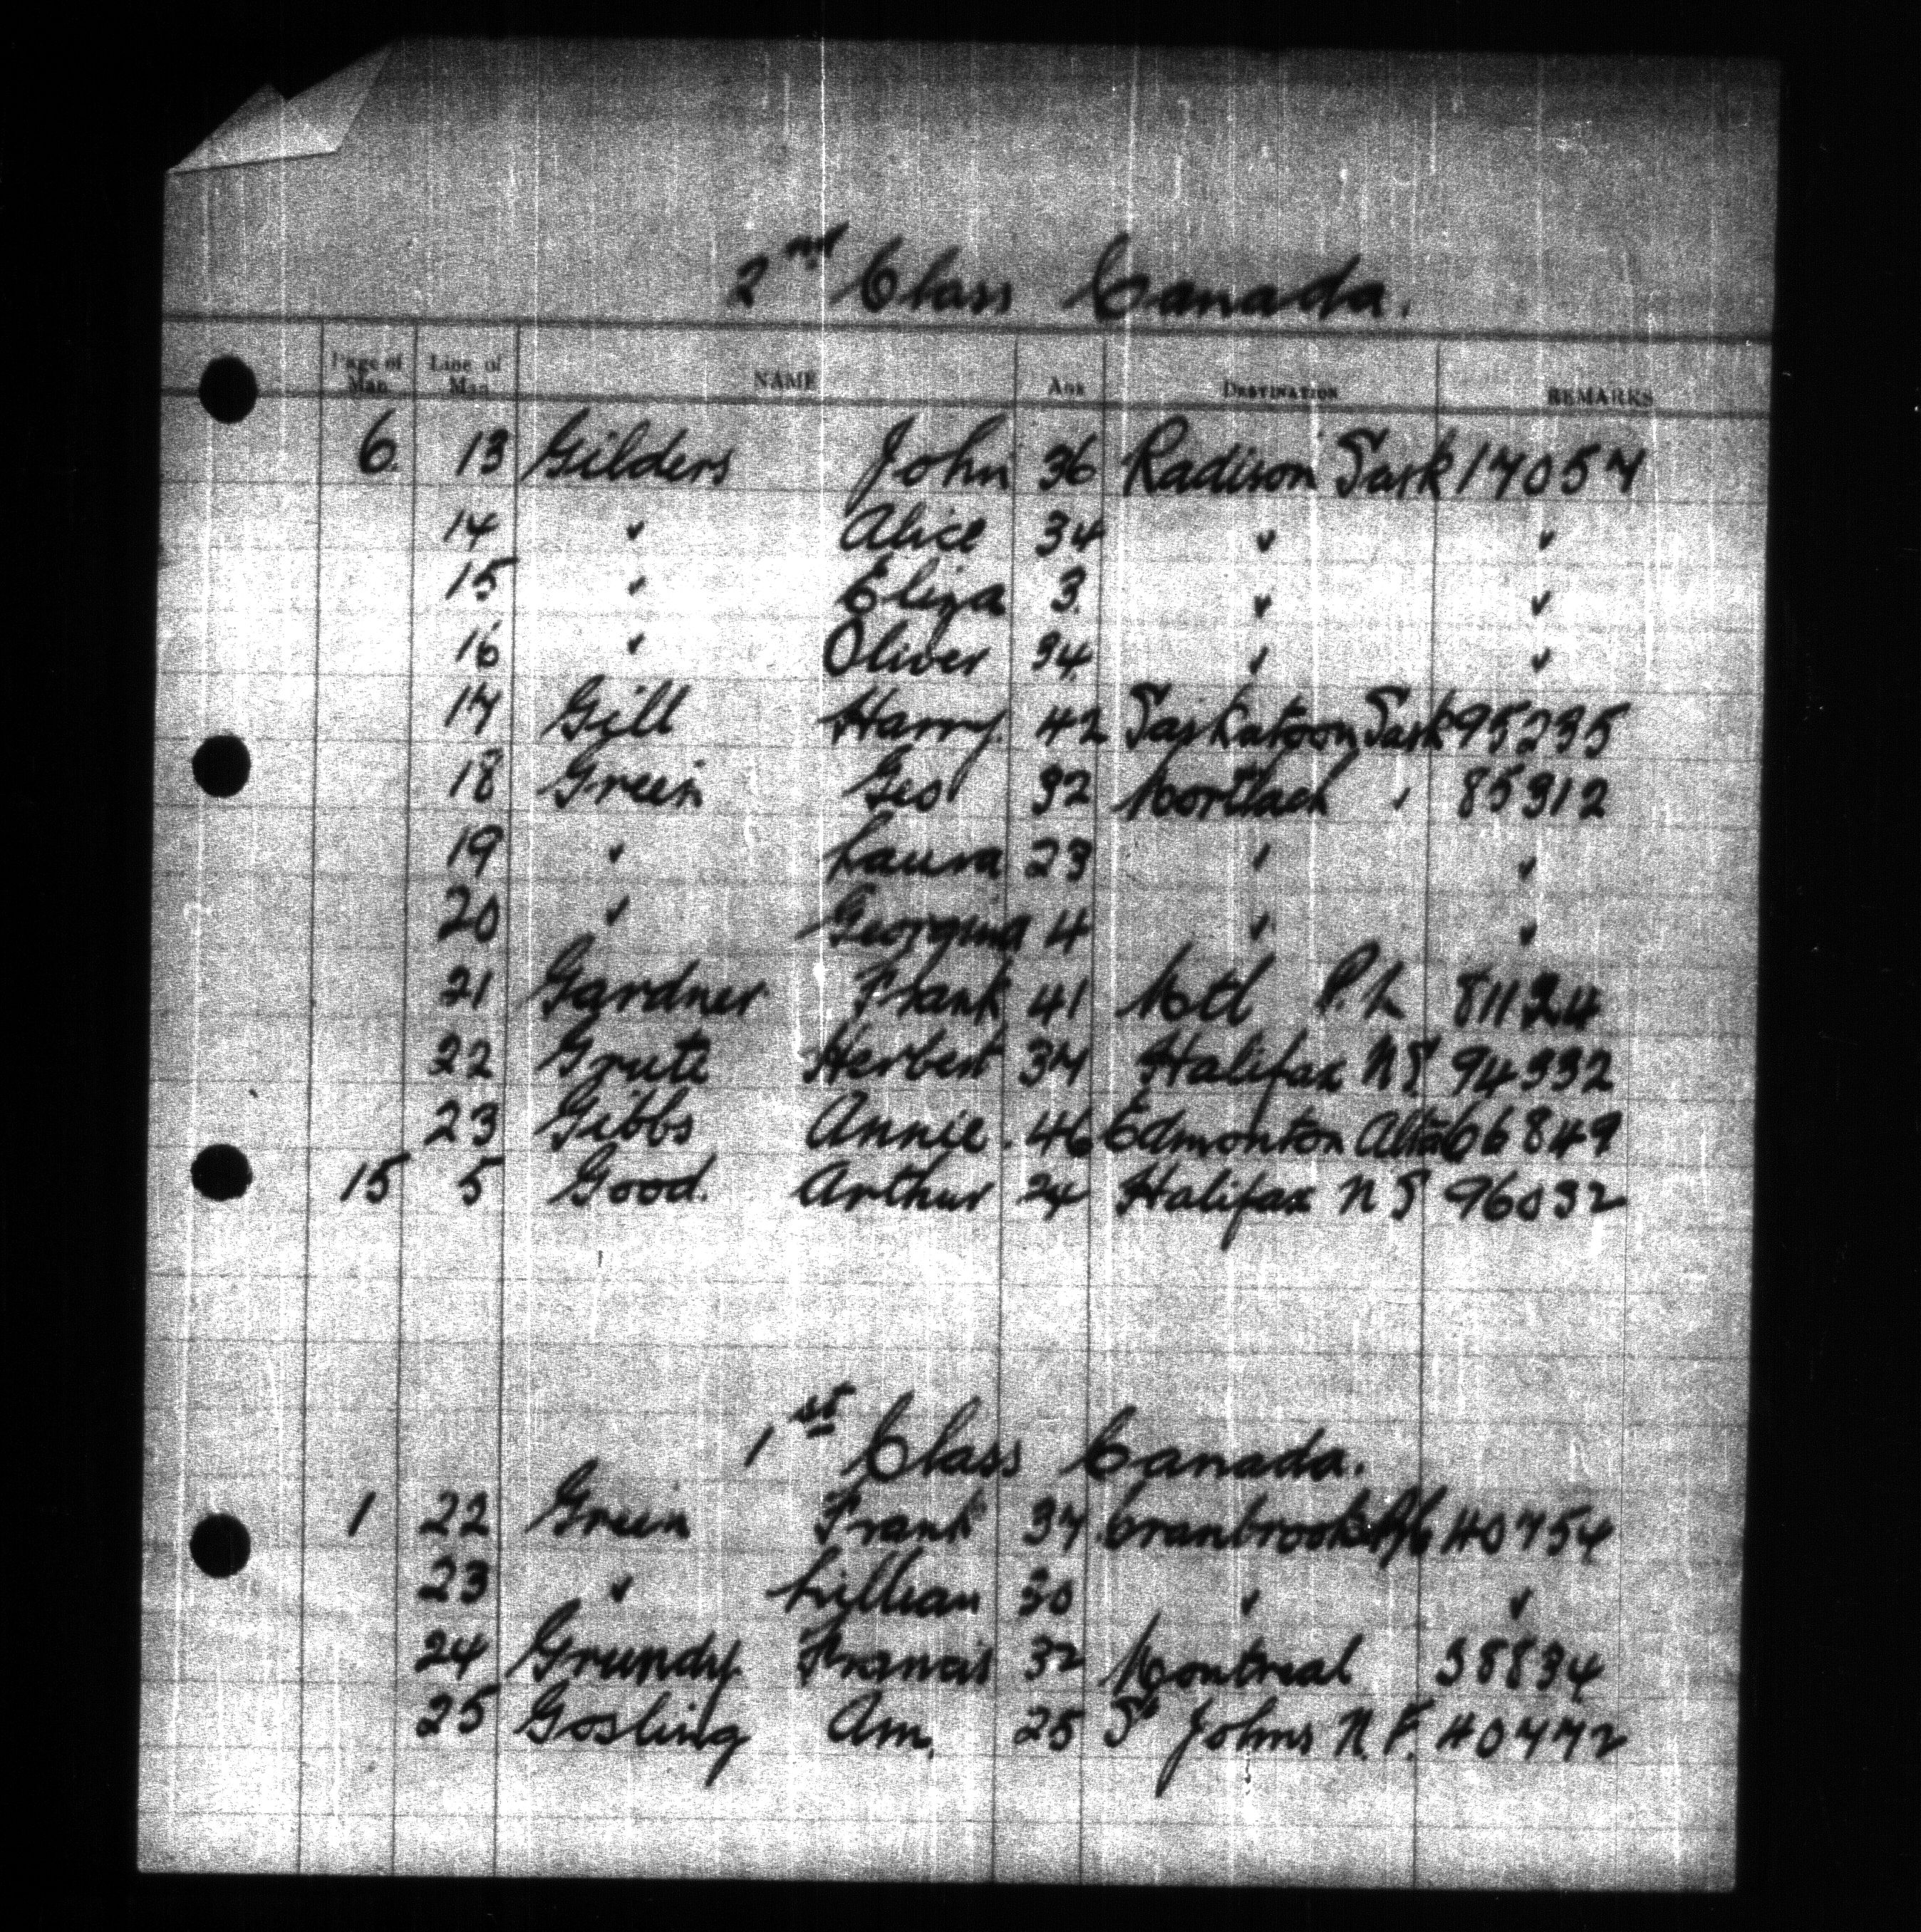 2nd Class Canada.
Page of Man. Line of Man. NAME AGE DESTINATION REMARKS
6. 13 Gilders John 36 Radison Sask 17057
14 " Alice 34 " "
15 " Eliza 3 " "
16 " Oliver 34 " "
17 Gill Harry. 42 Saskatoon Sask 95235
18 Green Geo 32 Mortlach " 85312
19 " Laura 23 " "
20 " Georgina 4 " "
21 Gardner Frank 41 Mtl 81124
22 Herbert 37 Halifax N S 94332
23 Gibbs Annie. 46 Edmonton Alta 66849
15 5 Good. Arthur 24 Halifax N S 96032
1st Class Canada.
1 22 Green Frank 37 Cranbrook 40754
23 " Lillian 30 " "
24 Grundy Francis 32 Montreal 38834
25 Gosling Am. 25 St Johns N. F. 40772